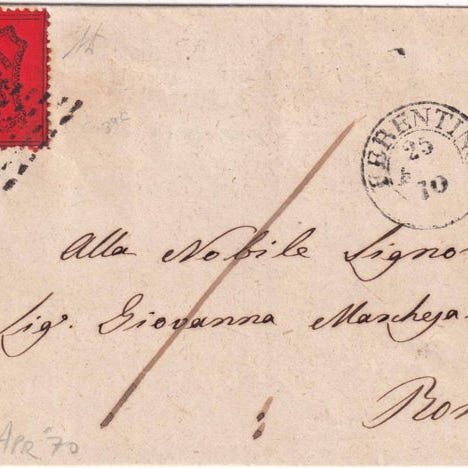 FERENTIN
25
4
70
Alla Nobile Signo
Sig. Giovanna Marchesa
Ro
APR '70